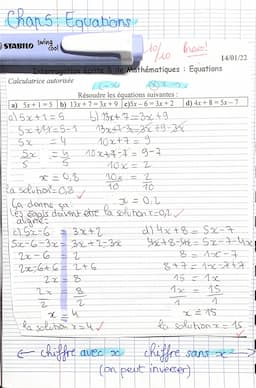 Chap 5: Equations
STABILO swing cool
10/10 bravo!
14/01/22
Mathématiques : Equations
Calculatrice autorisée
Résoudre les équations suivantes :
a) 5x+1=5 b) 13x+7=3x+9 c) 5x−6=3x+2 d) 4x+8=5x−7
a) 5x+1=5 b) 13x+7=3x+9
5x+1-1=5-1 13x+7-3x=3x+9-3x
5x = 4 10x+7=9
5x = 4 10x+7-7=9-7
5 5 10x = 2
x = 0,8 10x = 2
10 10
la solution=0,8 x = 0,2
Ça donne ça:
Les égals doivent être la solution=0,2
aligné-
c) 5x-6 = 3x+2 d) 4x+8=5x-7
5x-6-3x=3x+2-3x 4x+8-4x=5x-7-4x
2x-6 = 2 8=1x-7
2x-6+6=2+6 8+7=1x-7+7
2x = 8 15=1x
2x = 8 1x = 15
2 2 1 1
x = 4 x = 15
la solution x=4 la solution x=15
← chiffre avec x chiffre sans x →
(on peut inverser)